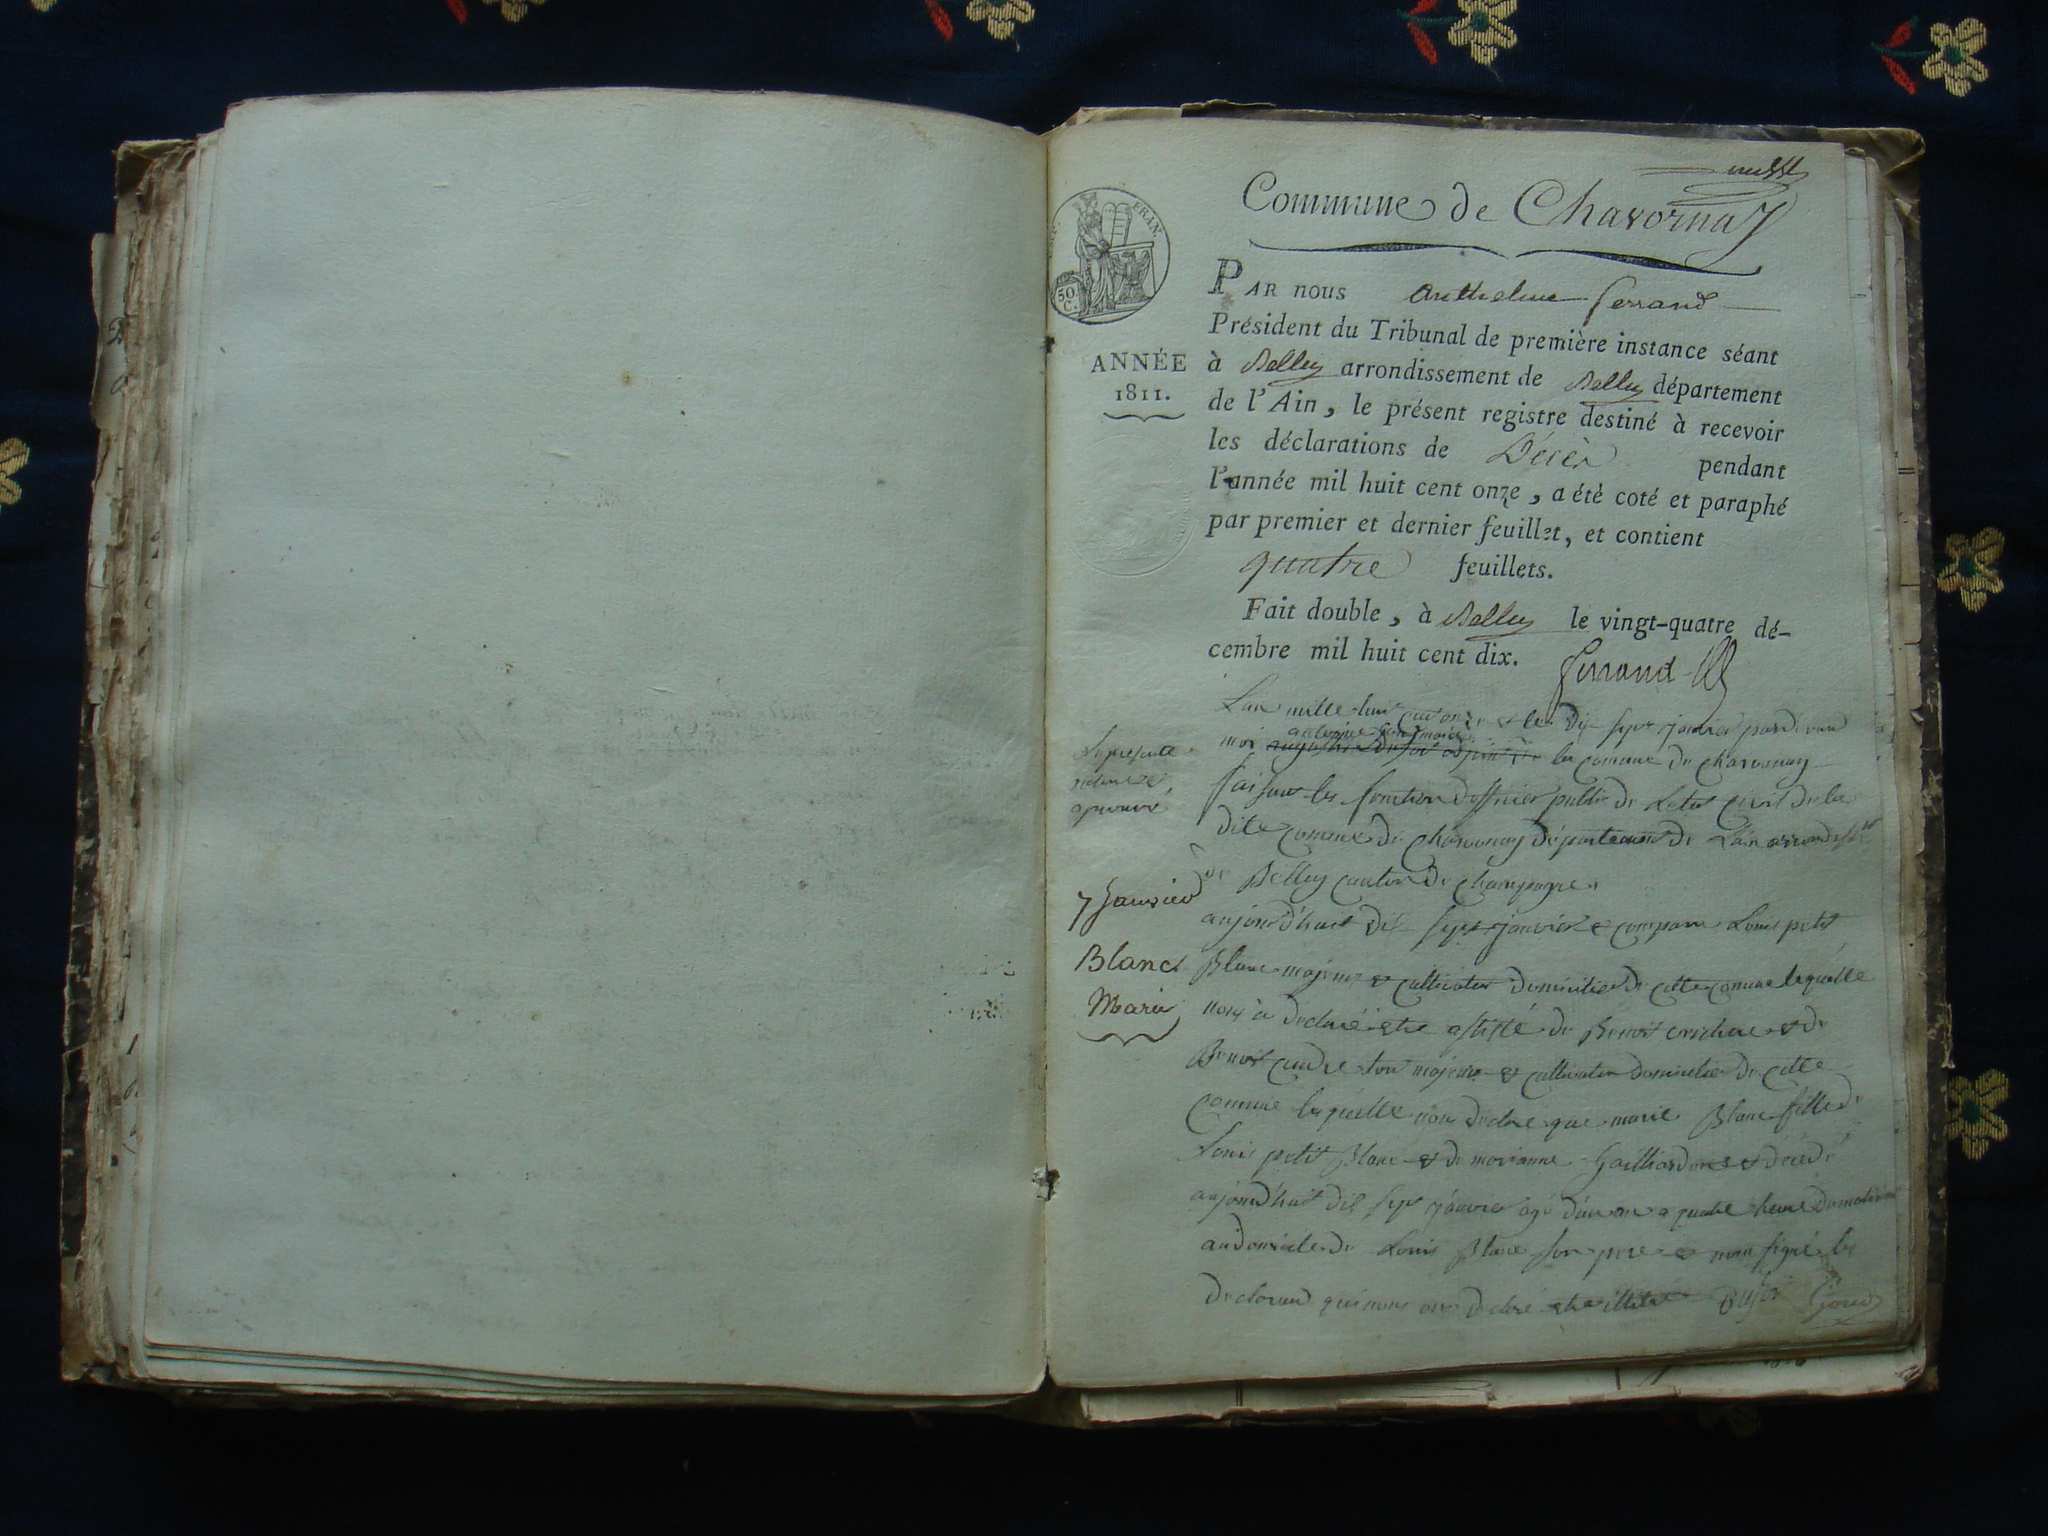 Commune de Chavornay
FRAN.
50
C.
ANNÉE
1811.
PAR nous Anthelme ferrand
Président du Tribunal de première instance séant
à Belley arrondissement de Belley département
de l'Ain, le présent registre destiné à recevoir
les déclarations de Décès pendant
l'année mil huit cent onze, a été coté et paraphé
par premier et dernier feuillet, et contient
quatre feuillets.
Fait double, à Belley le vingt-quatre dé-
cembre mil huit cent dix.
ferrand
Lan mille huit cent onze et le dix sept janvier pardevant
moi la comune de Chavornay
faisant les fonction public de Letat Civil de la
dite comune de Chavornay département de Lain
de Belley canton de Champagne
7 Janvier
Blanc
Marie
aujourd'huit dix sept janvier compare Louis petit
Blanc majeur et cultivater domicilier de cette comune lequelle
nous à declaré etre assisté de Benoit et de
Benoit tou majeur et cultivater domicilie de cette
comune lequelle nou declare que marie Blanc fille de
Louis petit Blanc et de marianne décédé
aujourd'huit dix sept janvier agé d'un an a quatre heure du matin
au domicile de Louis Blanc son pere et non signé les
declarant qui nous ont declaré